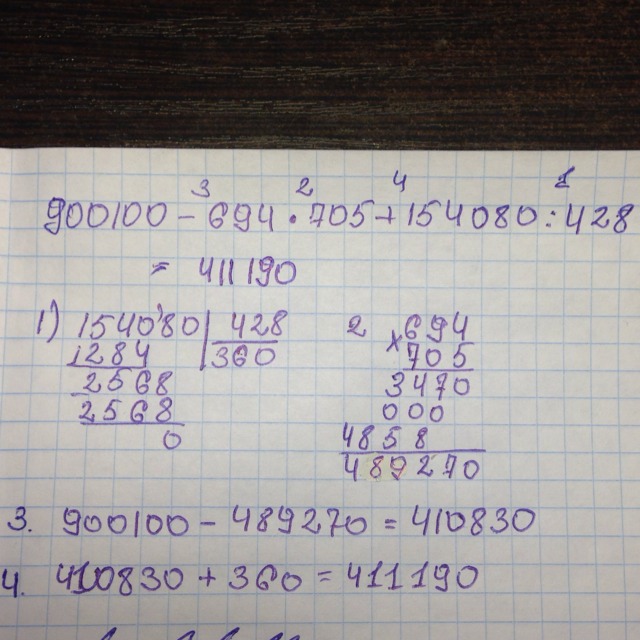 3 2 4 1
900100 - 694 · 705 + 154080 : 428
= 411190
1) 154080 | 428
1284 | 360
2568
2568
0
2 694
× 705
3470
000
4858
489270
3. 900100 - 489270 = 410830
4. 410830 + 360 = 411190